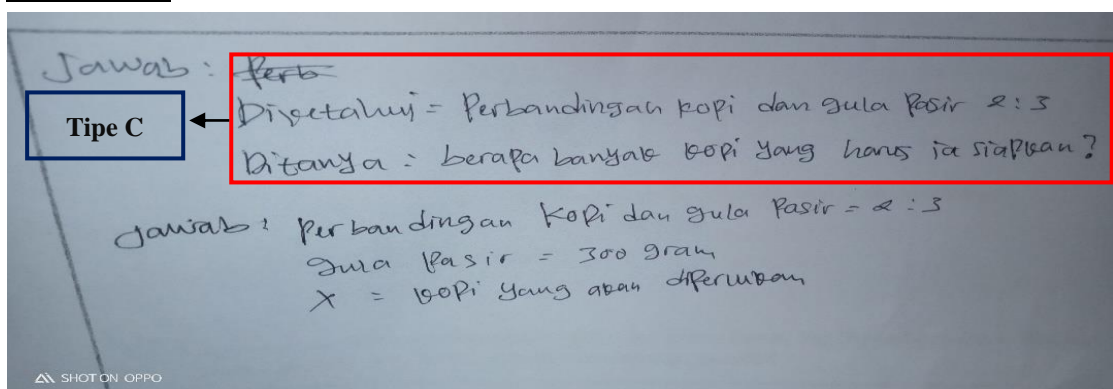 Jawab : Perb
Diketahui = Perbandingan kopi dan gula Pasir 2 : 3
Tipe C
Ditanya : berapa banyak kopi yang harus ia siapkan ?
Jawab : Perbandingan Kopi dan gula Pasir = 2 : 3
gula Pasir = 300 gram
X = kopi yang akan diperlukan
SHOT ON OPPO